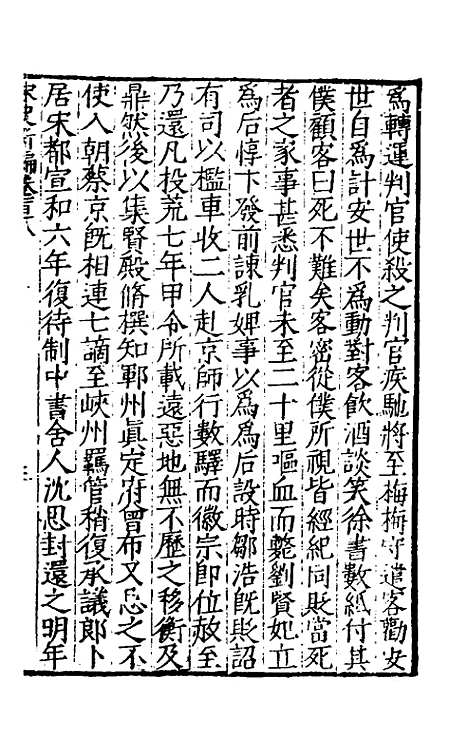 為轉運判官使殺之判官疾馳將至梅梅守遣客勸安
世自為計安世不為動對客飲酒談笑徐書數紙付其
僕顧客曰死不難矣客密從僕所視皆經紀同貶當死
者之家事甚悉判官未至二十里嘔血而斃劉賢妃立
為后惇卞發前諫乳婢事以為為后設時鄒浩旣貶詔
有司以檻車收二人赴京師行數驛而徽宗即位赦至
乃還凡投荒七年甲令所載遠惡地無不歷之移衡及
鼎然後以集賢殿脩撰知鄆州眞定府曾布又忌之不
使入朝蔡京旣相連七謫至峽州羈管稍復承議郎卜
居宋都宣和六年復待制中書舍人沈思封還之明年
宋史新編卷百八